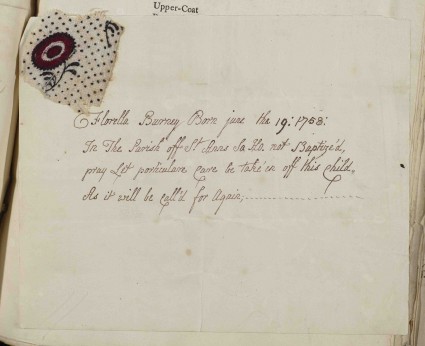 Upper-Coat
Florella Burney Born june tha 19: 1758:
In The Parish off St Anns So Ho. not Baptize'd,
pray Let particulare Care be take'en off this Child,
As it will be call'd for Again,